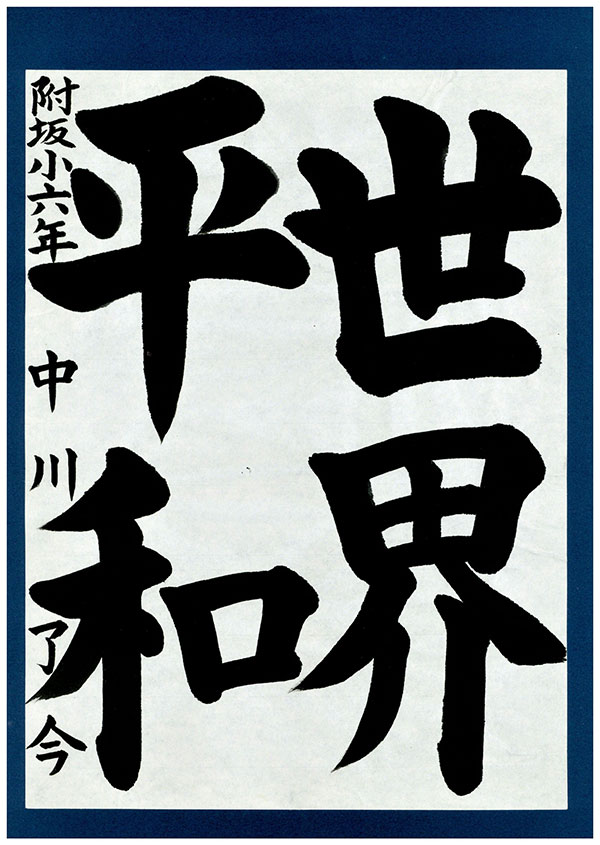 世界
平和
附坂小六年 中川了今